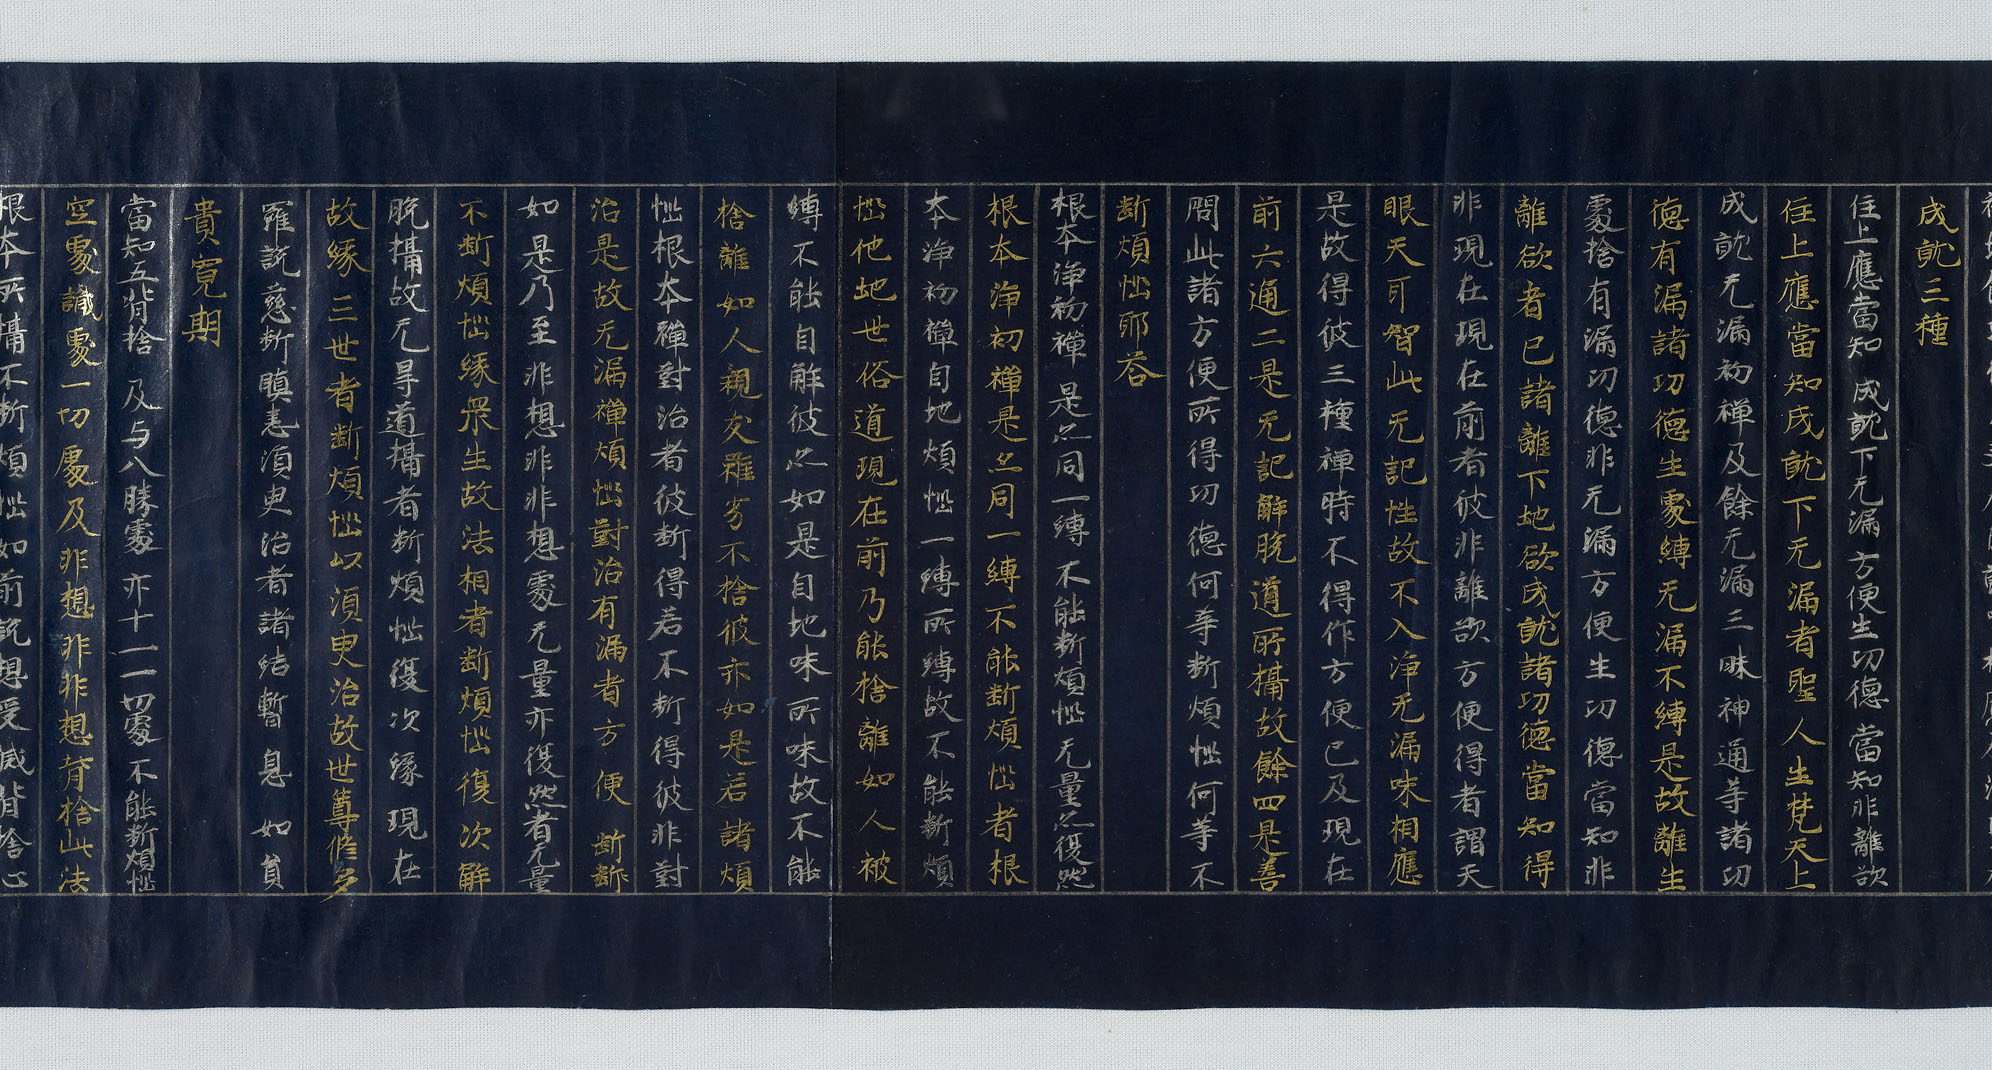 成就三種
住上應當知 成就下无漏方便生功德 當知非離欲
住上應當知成就下无漏者聖人生梵天上
成就无漏初禪及餘无漏三昧神通等諸功
德有漏諸功德生處縛无漏不縛是故離生
處捨有漏功德非无漏方便生功德當知非
離欲者已諸離下地欲成就諸功德當知得
非現在現在前者彼非離欲方便得者謂天
眼天耳智此无記性故不入淨无漏味相應
是故得彼三種禪時不得作方便已及現在
前六通二是无記解脫道所攝故餘四是善
問此諸方便所得功德何等斷煩惱何等不
斷煩惱耶答
根本淨初禪 是亦同一縛 不能斷煩惱 无量亦復然
根本淨初禪是亦同一縛不能斷煩惱者根
本淨初禪自地煩惱一縛所縛故不能斷煩
惱他地世俗道現在前乃能捨離如人被
縛不能自解彼亦如是自地味所味故不能
捨離如人親友雖劣不捨彼亦如是若諸煩
惱根本禪對治者彼斷得若不斷得彼非對
治是故无漏禪煩惱對治有漏者方便斷斷
如是乃至非想非非想處无量亦復然者无量
不斷煩惱緣眾生故法相者斷煩惱復次解
脫攝故无㝵道攝者斷煩惱復次緣現在
故緣三世者斷煩惱以湏臾治故世尊修多
羅說慈斷瞋恚湏臾治者諸結暫息如貧
貴寬期
當知五背捨 及与八勝處 亦十一一切處 不能斷煩惱
空處識處一切處及非想非非想背捨此法
根本所攝不斷煩惱如前說想受滅背捨心